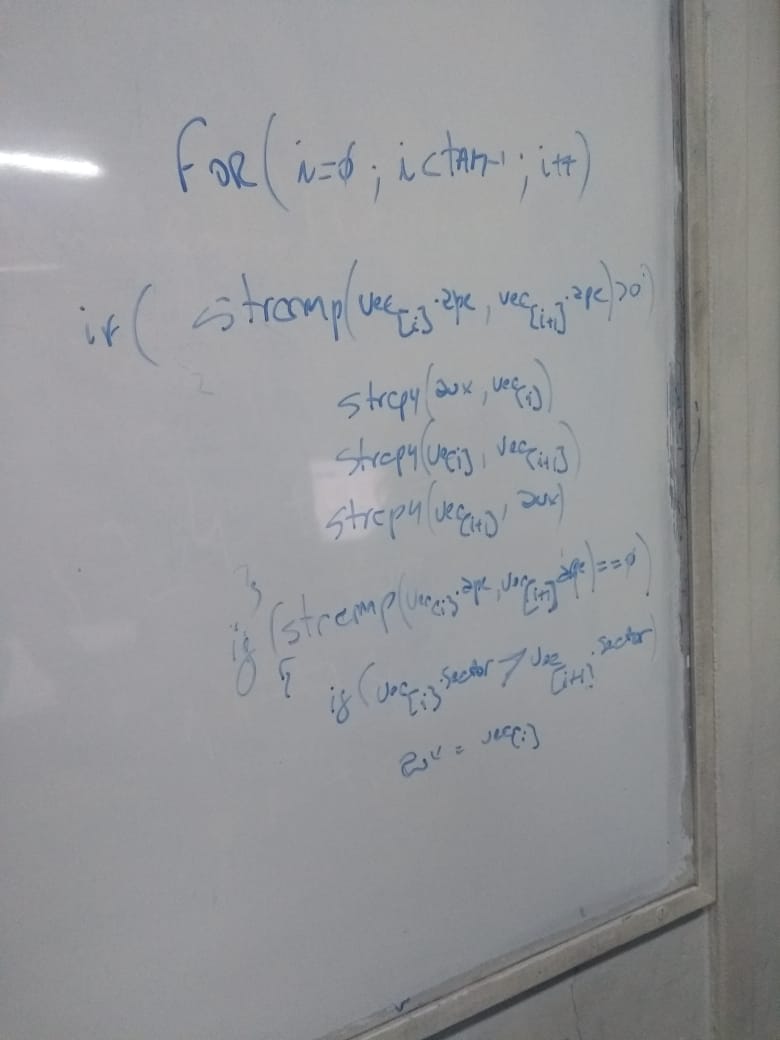 FOR( i=0 ; i<TAM-1 ; i++)
if( strcmp(vec[i].ape, vec[i+1].ape)>0)
{
strcpy(aux, vec[i])
strcpy(vec[i], vec[i+1])
strcpy(vec[i+1], aux)
}
if (strcmp(vec[i].ape, vec[i+1].ape)==0)
{ if(vec[i].sector > vec[i+1].sector)
aux = vec[i]